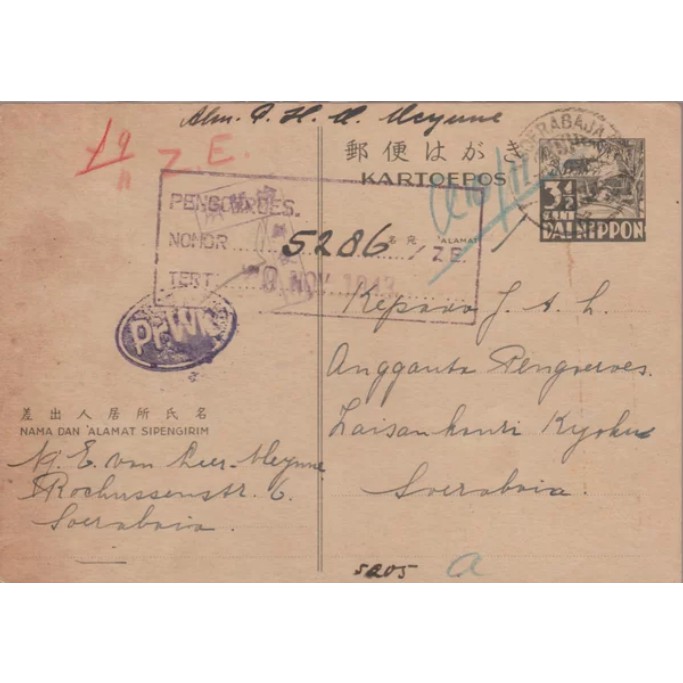 Alm. P. H. A. Meyune
19
11
Z E.
郵便はがき
KARTOEPOS
SOERABAJA
3½
SEN
DAI NIPPON
PENGOEROES.
NOMOR 5286 / Z E.
名宛 'ALAMAT
TERT: 9 NOV 1943
PFWK
Kepada J. A. h.
Anggauta Pengoeroes.
Zaisankanri Kyoku
Soerabaia.
差出人居所氏名
NAMA DAN 'ALAMAT SIPENGIRIM
E. van Leer-Meyune
Rochussenstr. 6.
Soerabaia.
5205 A